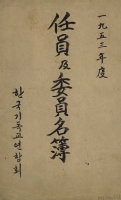 一九五三年度
任員及委員名簿
한국기독교연합회